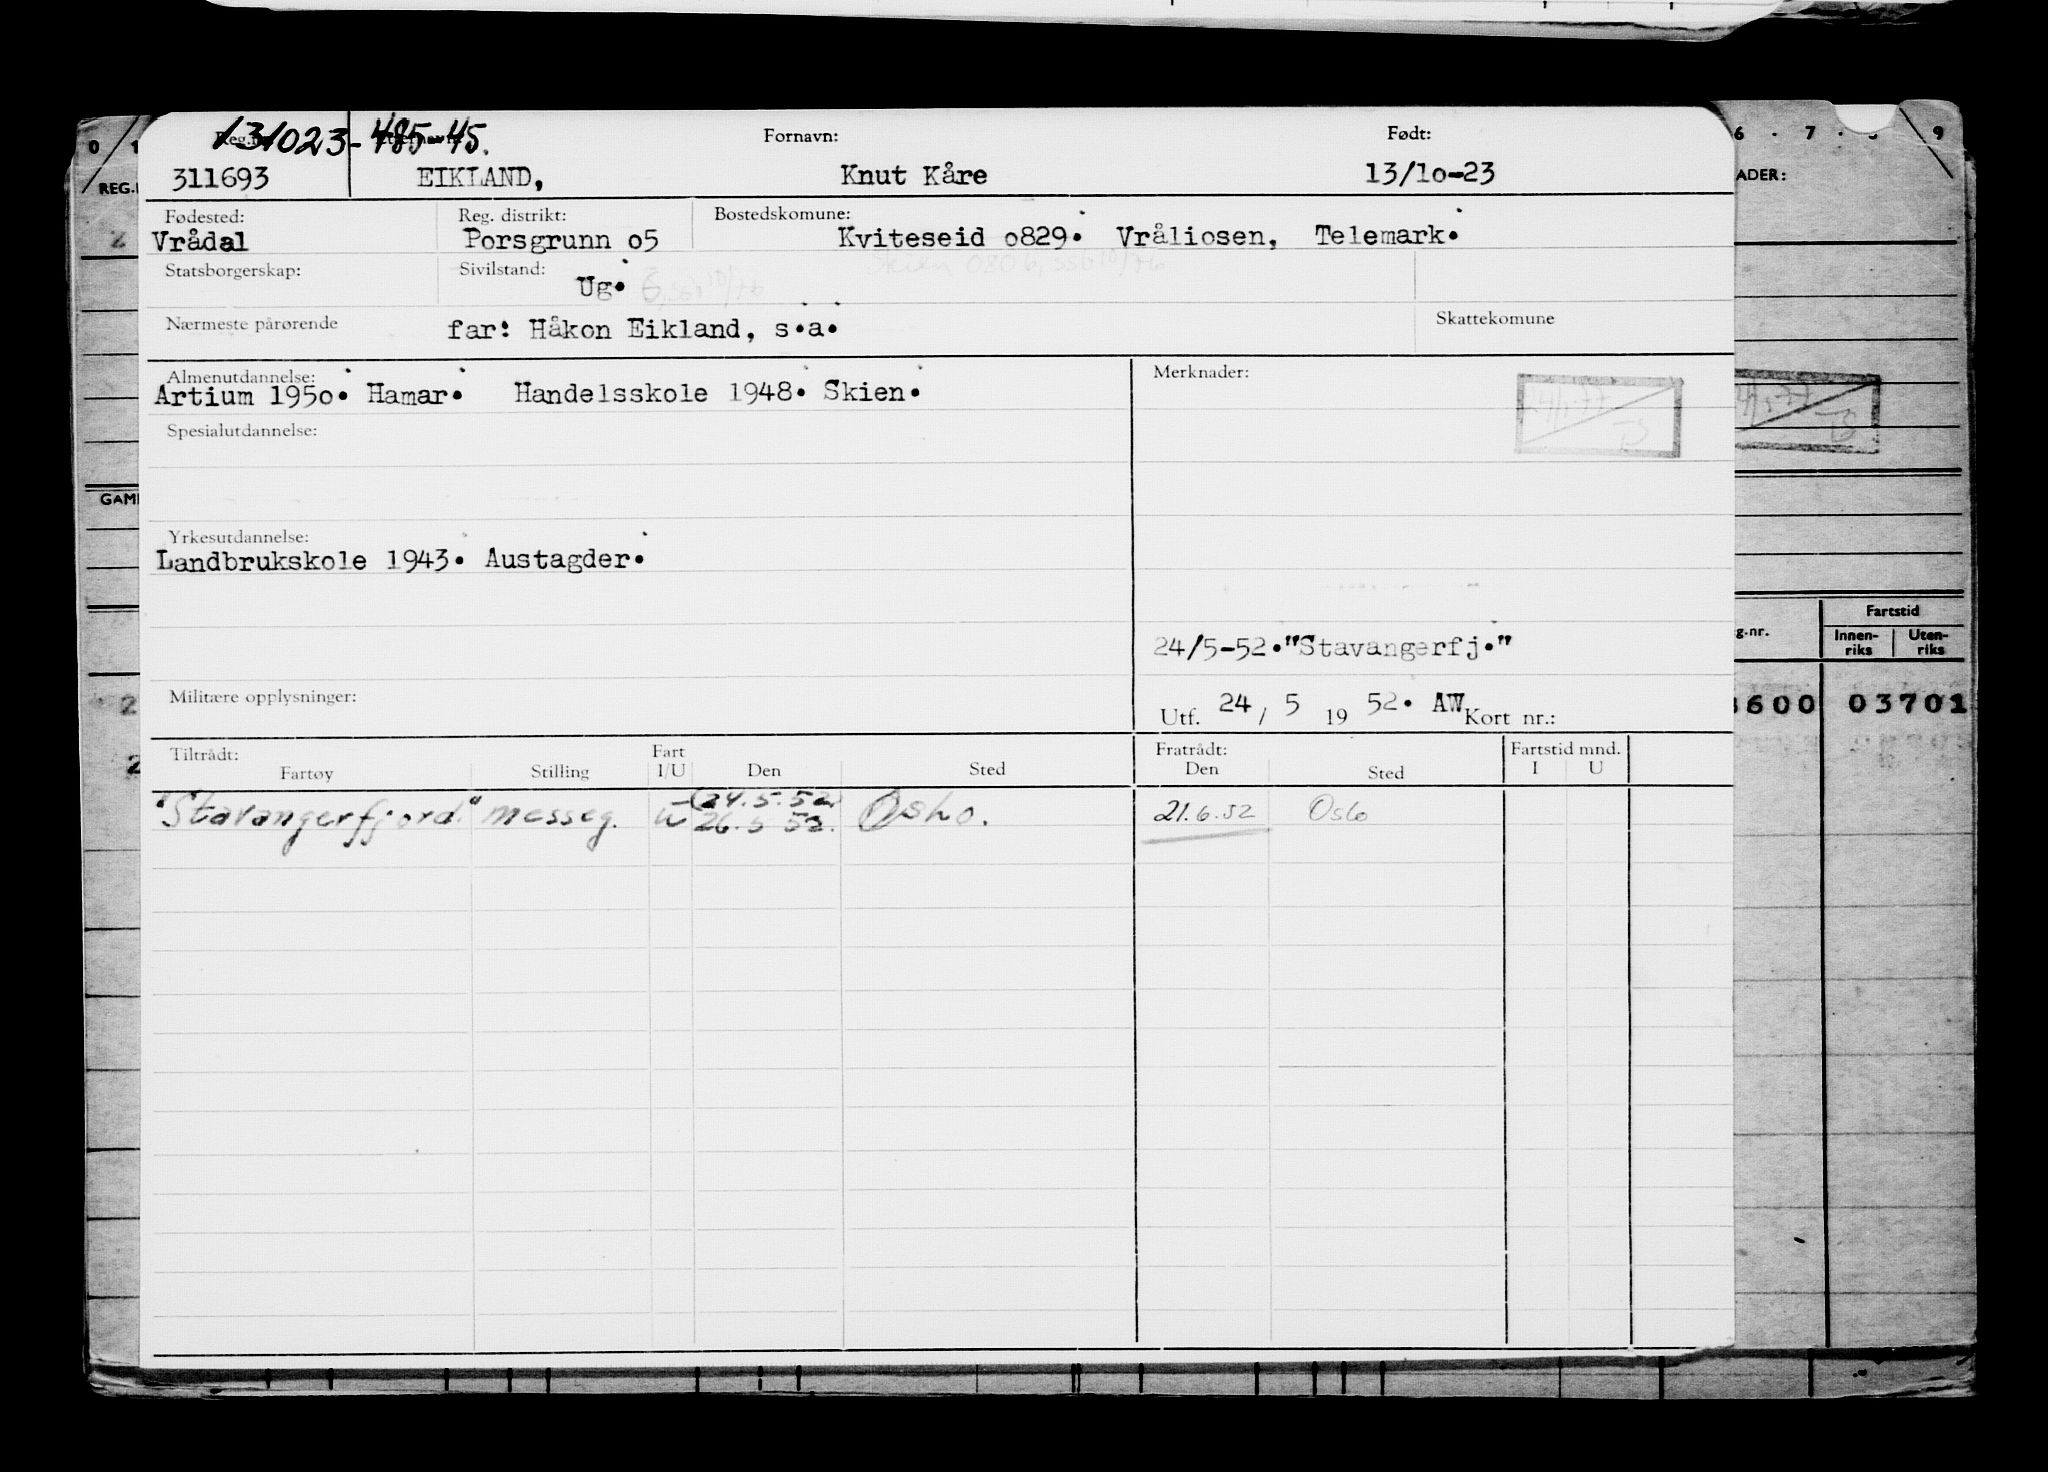 0 1 6 . 7 . 8 9
131023-485-45.
Reg.nr. Fornavn: Født:
311693 EIKLAND, Knut Kåre 13/1o-23
REG. ADER:
Fødested: Reg. distrikt: Bostedskomune:
Vrådal Porsgrunn o5 Kviteseid o829. Vråliosen, Telemark.
Skien 0806, ssb 10/76
Statsborgerskap: Sivilstand:
Ug. G, ssb 10/76
Nærmeste pårørende far: Håkon Eikland, s.a. Skattekomune
Almenutdannelse: Merknader:
Artium 195o. Hamar. Handelsskole 1948. Skien.
24/5-77
TS
Spesialutdannelse:
GAM
Yrkesutdannelse:
Landbrukskole 1943. Austagder.
Fartstid
g.nr. Innen-riks Uten-riks
24/5-52."Stavangerfj."
Militære opplysninger:
Utf. 24 / 5 19 52. AW Kort nr.:
2 600 03701
Tiltrådt: Fart Fratrådt: Fartstid mnd.
Fartøy Stilling I/U Den Sted Den Sted I U
"Stavangerfjord" messeg. U (24.5.52) 26.5 52. Oslo. 21.6.52 Oslo